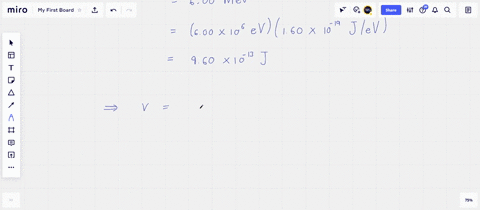 miro My First Board Share
= 6.00 MeV
= (6.00 × 10⁶ eV)(1.60 × 10⁻¹⁹ J/eV)
= 9.60 × 10⁻¹³ J
⇒ v =
75%